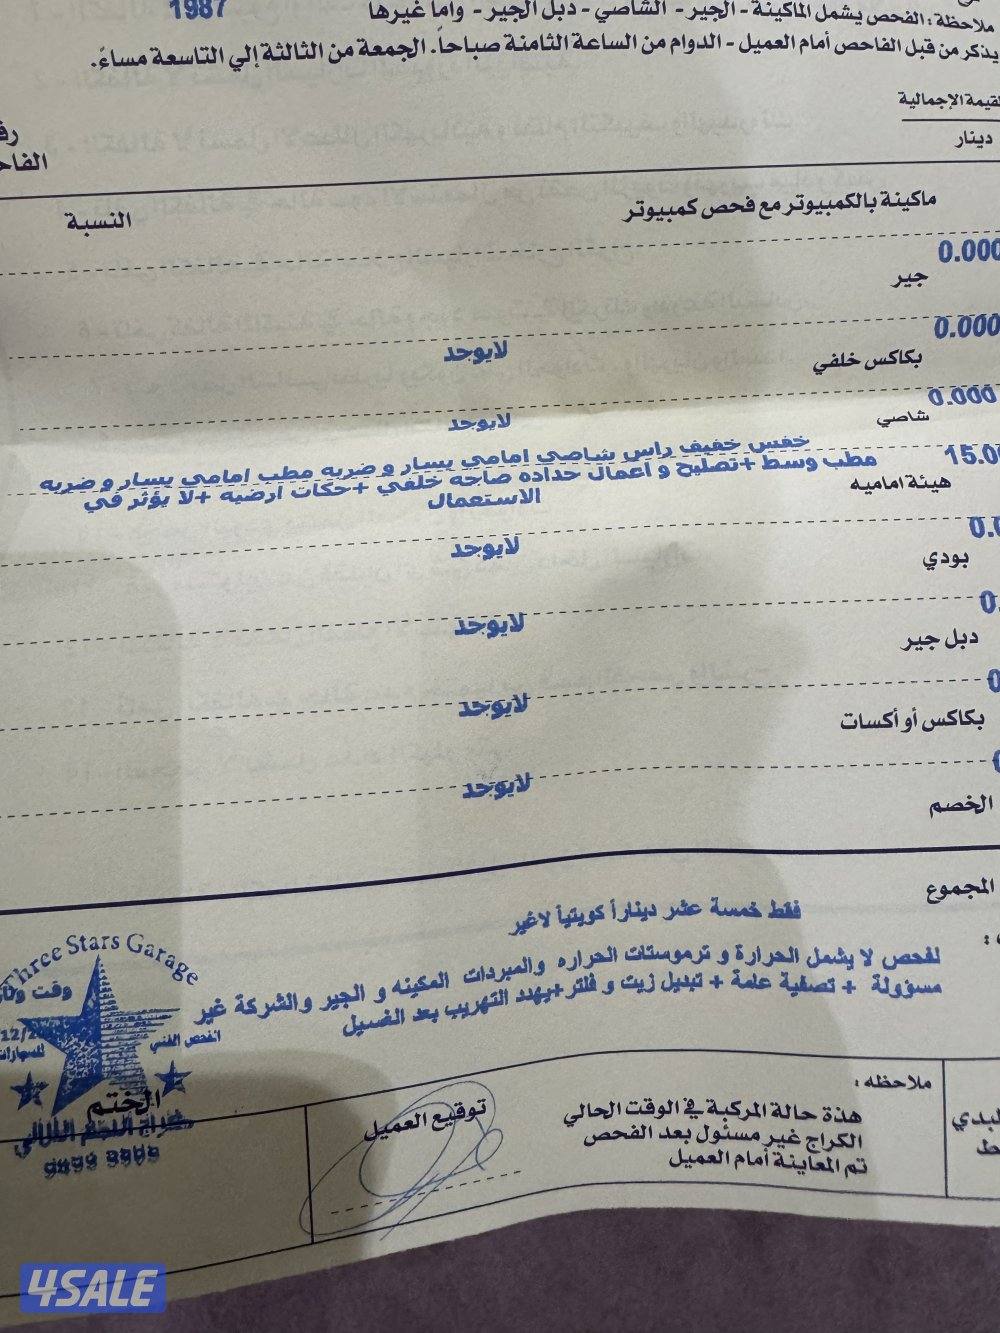 1987
ملاحظة : الفحص يشمل الماكينة - الجير - الشاصي - دبل الجير - واما غيرها
يذكر من قبل الفاحص أمام العميل - الدوام من الساعة الثامنة صباحاً. الجمعة من الثالثة إلي التاسعة مساءً.
القيمة الإجمالية
دينار
ماكينة بالكمبيوتر مع فحص كمبيوتر
النسبة
0.000
جير
0.000
لايوجد
بكاكس خلفي
0.000
لايوجد
شاصي
خفس خفيف راس شاصي امامي يسار و ضربه مطب امامي يسار و ضربه
مطب وسط +تصليح و اعمال حداده صاجه خلفي +حكات ارضيه +لا يؤثر في
الاستعمال
هيئة اماميه
لايوجد
بودي
لايوجد
دبل جير
لايوجد
بكاكس أو أكسات
لايوجد
الخصم
المجموع
فقط خمسة عشر ديناراً كويتياً لاغير
لفحص لا يشمل الحرارة و ترموستات الحراره والمبردات المكينه و الجير والشركة غير
مسؤولة + تصفية عامة + تبديل زيت و فلتر+يهدد التهريب بعد الغسيل
Three Stars Garage
الفحص الفني
الختم
ملاحظه :
هذة حالة المركبة في الوقت الحالي
الكراج غير مسئول بعد الفحص
تم المعاينة أمام العميل
توقيع العميل
4SALE